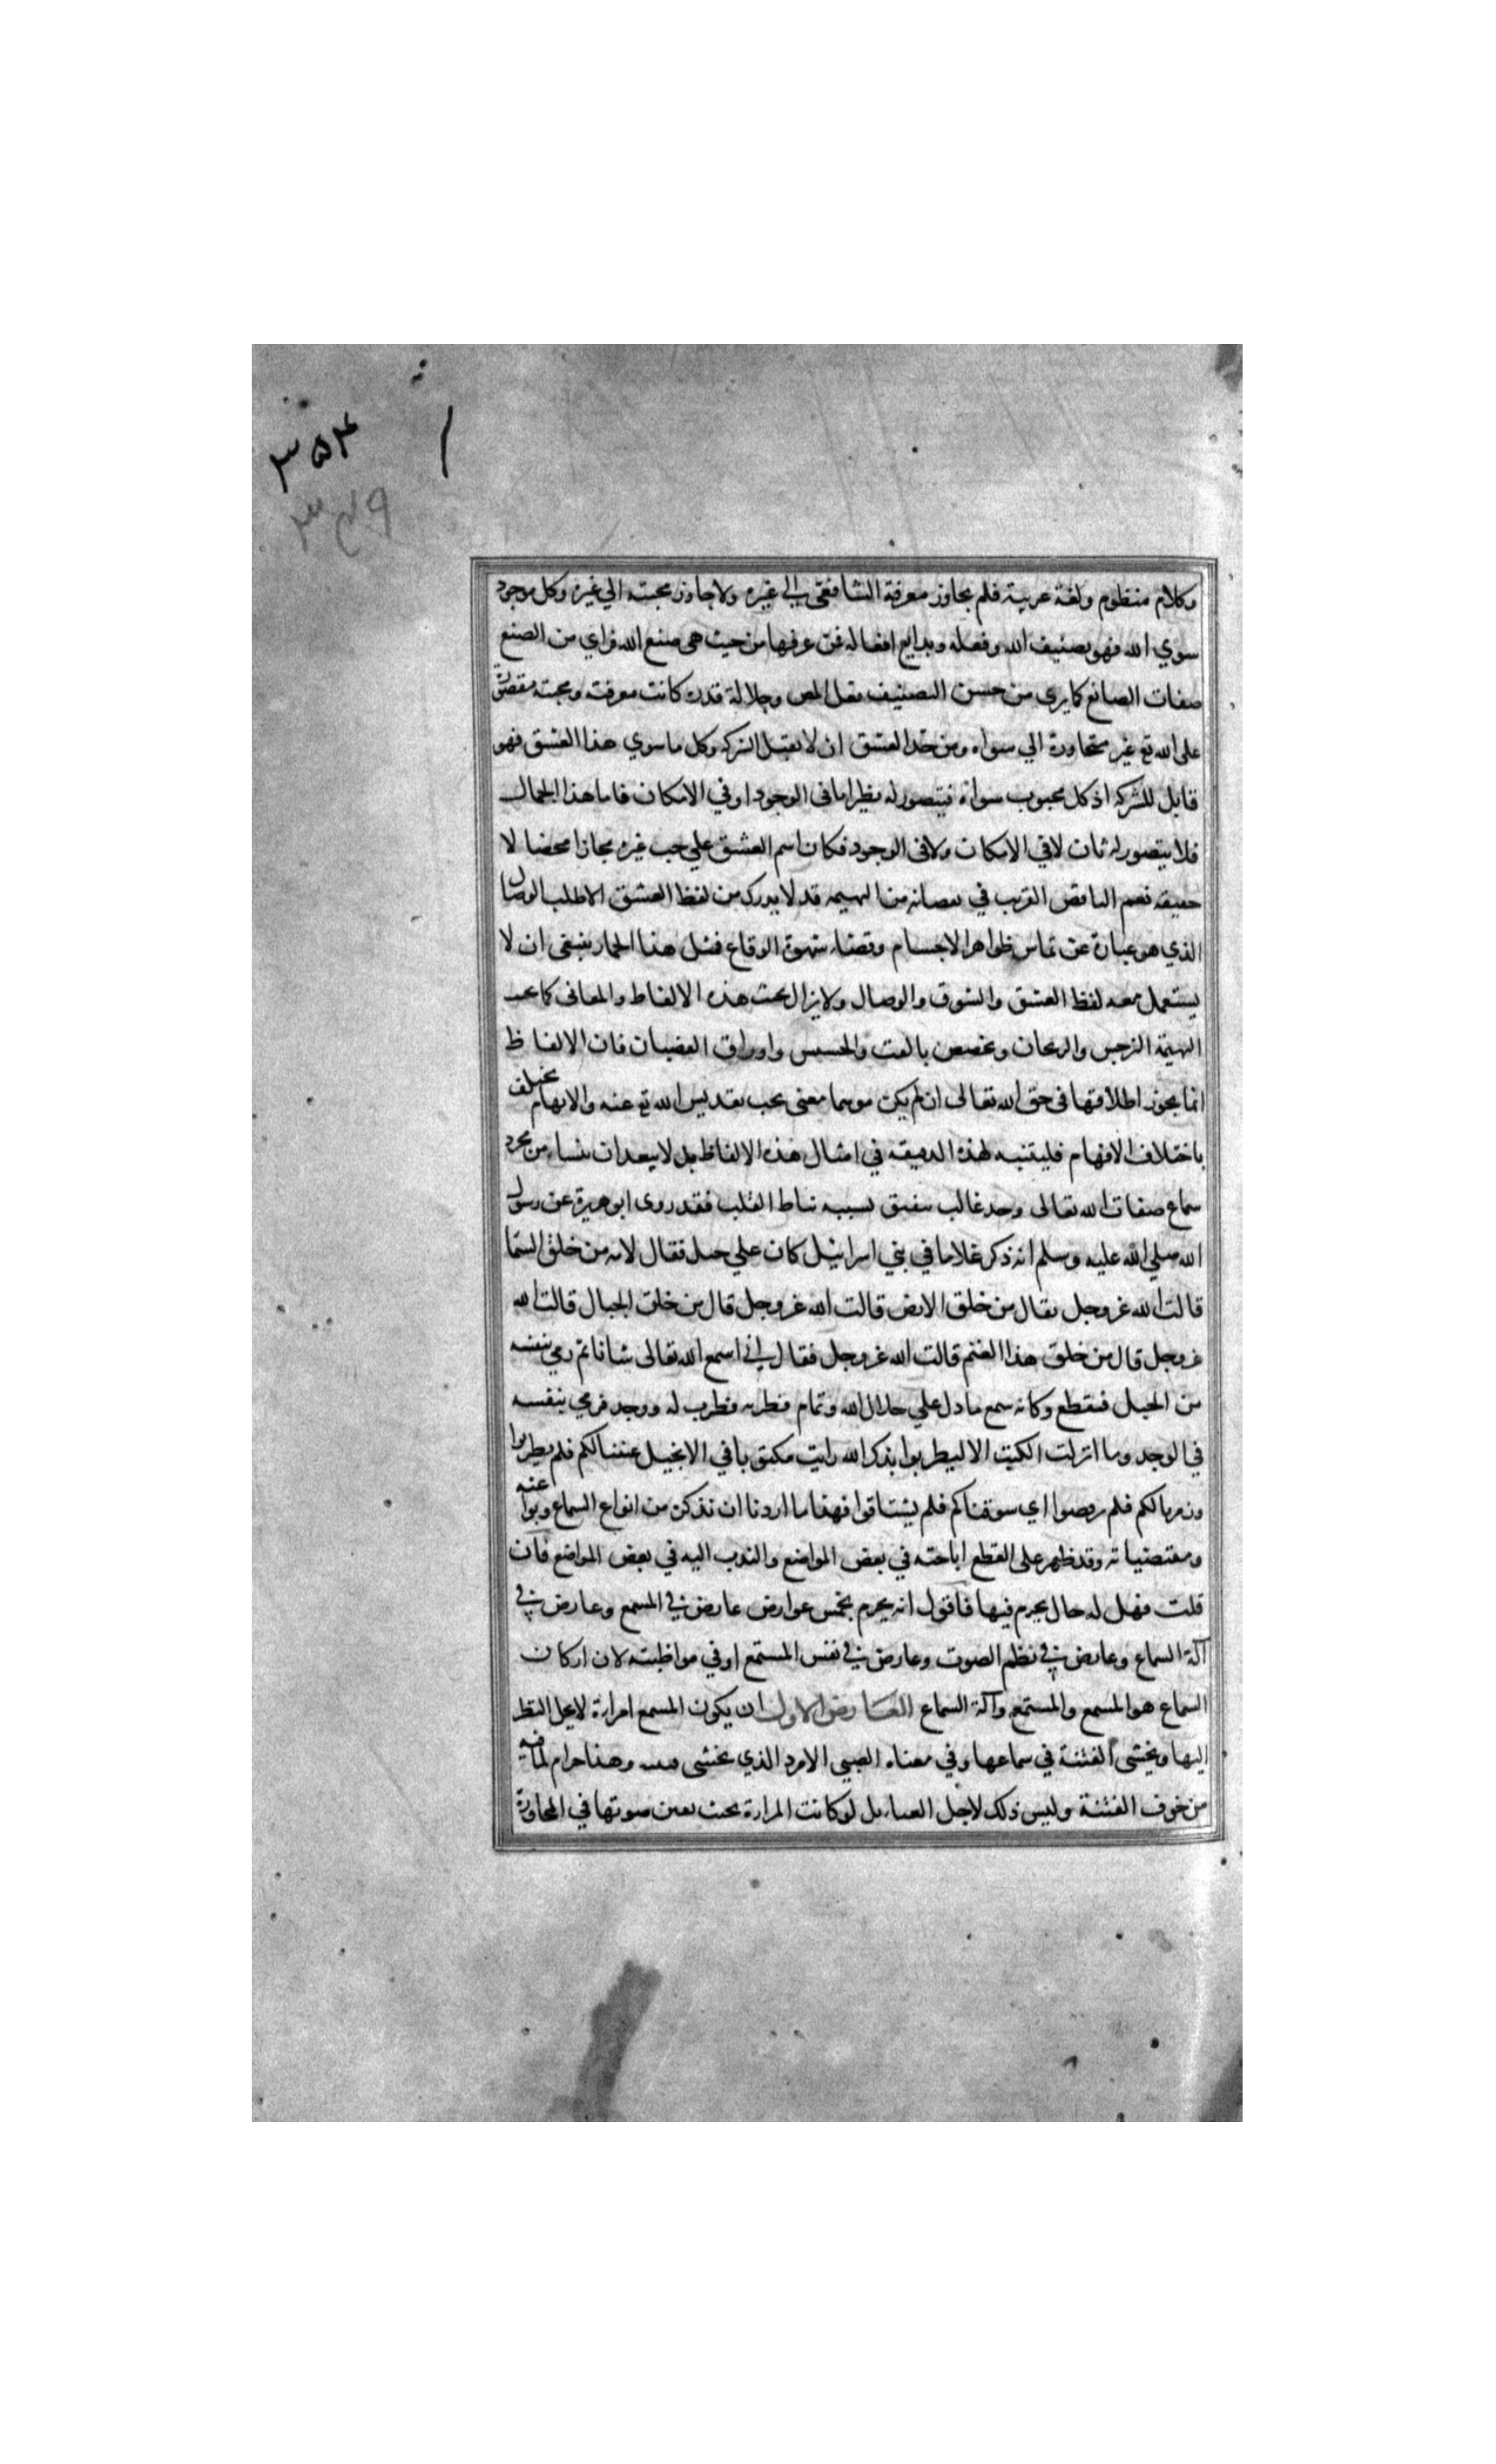 ۳۵۴
۳۴۹
وكلام منظوم ولغة عربية فلم يجاوز معرفة الشافعى الي غيره ولا جاوز محبته الي غيره وكل موجود
سوي الله فهو تصنيف الله وفعله وبدايع افعاله فمن عرفها من حيث هى صنع الله فراي من الصنع
صفات الصانع كما يرى من حسن التصنيف فضل المص وجلالة قدره كانت معرفته ومحبته مقصورة
على الله تع غير متجاوزة الي سواه ومن حد العشق ان لا يقبل الشركه وكل ما سوي هذا العشق فهو
قابل للشركه اذ كل محبوب سواه فيتصور له نظير اما فى الوجود او في الامكان فاما هذا الجمال
فلا يتصور له ثان لا في الامكان ولا فى الوجود فكان اسم العشق علي حب غيره مجازا محضا لا
حقيقه نعم الناقص القريب في نقصانه من البهيمه قد لا يدرك من لفظ العشق الا طلب الوصال
الذي هو عبارة عن تماس ظواهر الاجسام وقضاء شهوة الوقاع فمثل هذا الحمار ينبغى ان لا
يستعمل معه لفظ العشق والشوق والوصال ولا يزال بحث هذه الالفاظ والمعانى كما تجنب
البهيمة النرجس والريحان وتخصص بالقت والحسيس واوراق القضبان فان الالفاظ
انما يجوز اطلاقها فى حق الله تعالى ان لم يكن موهما معنى يجب تقديس الله تع عنه والابهام يختلف
باختلاف الافهام فليتنبه لهذه الدقيقه في امثال هذه الالفاظ بل لا يبعد ان ينشاء من مجرد
سماع صفات الله تعالى وجد غالب ينفتق بسببه نياط القلب فقد روى ابو هريرة عن رسول
الله صلي الله عليه وسلم انه ذكر غلاما في بني اسرائيل كان علي جبل فقال لامه من خلق السما
قالت الله عز وجل فقال من خلق الارض قالت الله عز وجل قال من خلق الجبال قالت الله
عز وجل قال من خلق هذا الغنم قالت الله عز وجل فقال اني اسمع الله تعالى شانا ثم رمي بنفسه
من الجبل فتقطع وكانه سمع ما دل علي جلال الله وتمام فطرب له ووجد فرمي بنفسه
في الوجد وما انزلت الكتب الا ليطربوا بذكر الله رايت مكتوبا في الانجيل غنينا لكم فلم يطربوا
وزمرنا لكم فلم يرقصوا اي شوقناكم فلم يشتاقوا فهذا ما اردنا ان نذكر من انواع السماع وبواعثه
ومقتضياته وقد ظهر على القطع اباحته في بعض المواضع والندب اليه في بعض المواضع فان
قلت فهل له حال يحرم فيها فاقول انه يحرم بخمس عوارض عارض في المسمع وعارض في
آلة السماع وعارض في نظم الصوت وعارض في نفس المستمع او في مواظبته لان اركان
السماع هو المسمع والمستمع وآلة السماع العارض الاول ان يكون المسمع امراة لا يحل النظر
اليها ويخشى الفتنة في سماعها وفي معناه الصبي الامرد الذي يخشى فتنته وهذا حرام لما فيه
من خوف الفتنة وليس ذلك لاجل الغناء بل لو كانت المراة بحيث يفتن صوتها في المحاورة